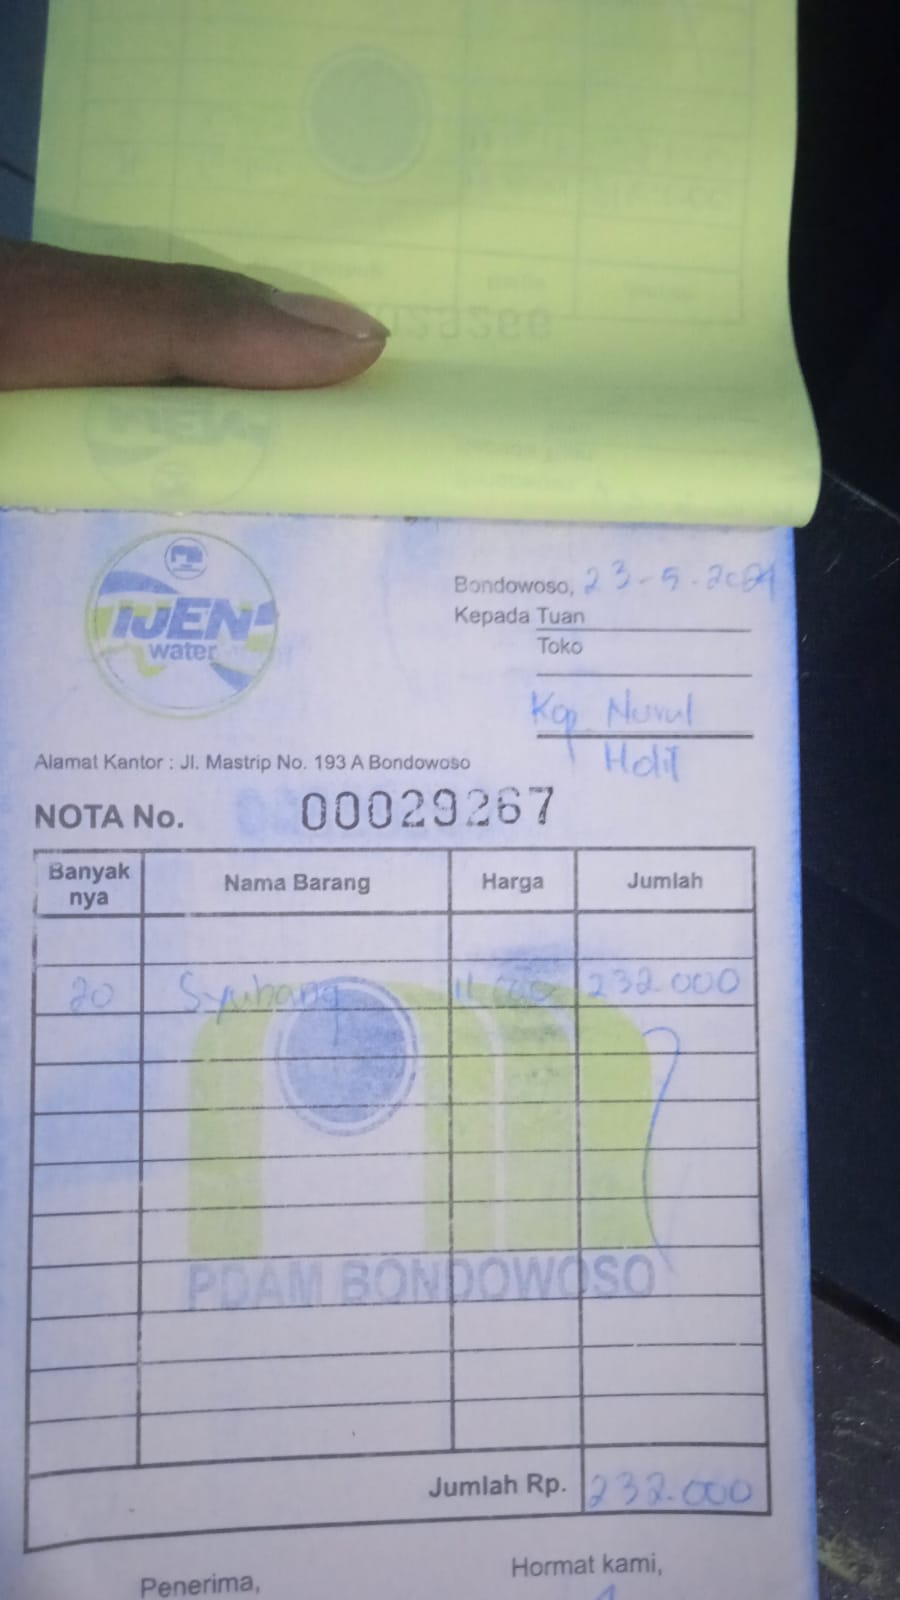 IJEN
water
Bondowoso, 23-5-2024
Kepada Tuan
Toko
Kop Nurul
Alamat Kantor : Jl. Mastrip No. 193 A Bondowoso
NOTA No. 00029267
Banyak nya Nama Barang Harga Jumlah
20 232.000
PDAM BONDOWOSO
Jumlah Rp. 232.000
Penerima, Hormat kami,